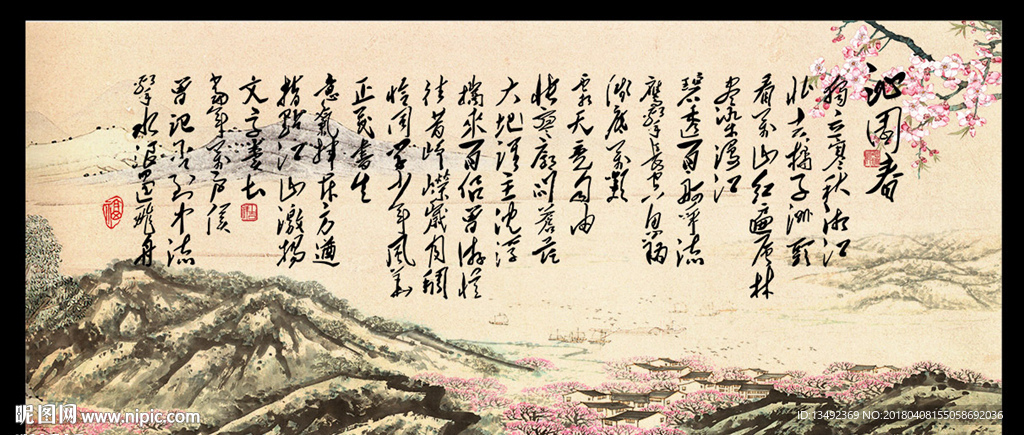 沁园春
独立寒秋湘江
北去橘子洲头
看万山红遍层林
尽染漫江
碧透百舸争流
鹰击长空鱼翔
浅底万类
霜天竞自由
怅寥廓问苍茫
大地谁主沉浮
携来百侣曾游忆
往昔峥嵘岁月稠
恰同学少年风华
正茂书生
意气挥斥方遒
指点江山激扬
文字粪土
当年万户侯
曾记否到中流
击水浪遏飞舟
昵图网 www.nipic.com
ID:13492369 NO:20180408155058692036